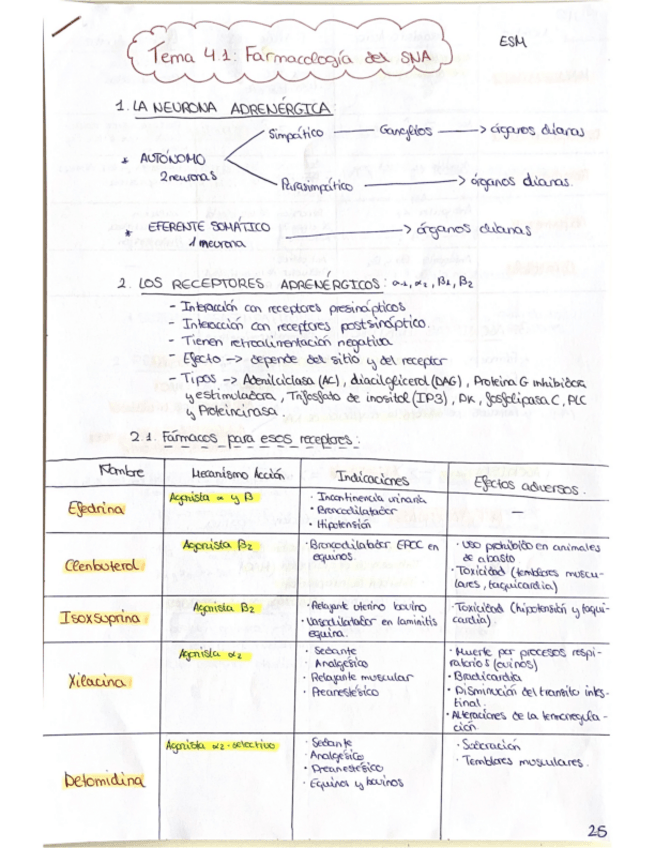 Tema 4.1: Farmacología del SNA
ESM
1. LA NEURONA ADRENÉRGICA:
* AUTÓNOMO
2 neuronas
Simpático → Ganglios → órganos dianas
Parasimpático → órganos dianas.
* EFERENTE SOMÁTICO → órganos dianas
1 neurona
2. LOS RECEPTORES ADRENÉRGICOS: α1, α2, β1, β2
- Interacción con receptores presinápticos
- Interacción con receptores postsináptico.
- Tienen retroalimentación negativa
- Efecto → depende del sitio y del receptor
- Tipos → Adenilciclasa (AC), diacilglicerol (DAG), Proteína G inhibidora
y estimuladora, Trifosfato de inositol (IP3), PK, fosfolipasa C, PLC
y Proteincinasa.
2.1. Fármacos para esos receptores:
Nombre Mecanismo Acción Indicaciones Efectos adversos.
Efedrina
Agonista α y β
· Incontinencia urinaria
· Broncodilatador
· Hipotensión
—
Clenbuterol
Agonista β2
· Broncodilatador EPOC en
equinos
· Uso prohibido en animales
de abasto
· Toxicidad (temblores muscu-
lares, taquicardia)
Isoxsuprina
Agonista β2
· Relajante uterino bovino
· Vasodilatador en laminitis
equina.
· Toxicidad (hipotensión y taqui-
cardia).
Xilacina
Agonista α2
· Sedante
· Analgésico
· Relajante muscular
· Preanestésico
· Muerte por procesos respi-
ratorios (ovinos)
· Bradicardia
· Disminución del transito intes-
tinal.
· Alteraciones de la termorregula-
ción
Detomidina
Agonista α2-selectivo
· Sedante
· Analgésico
· Preanestésico
· Equinos y bovinos
· Sudoración
· Temblores musculares.
25